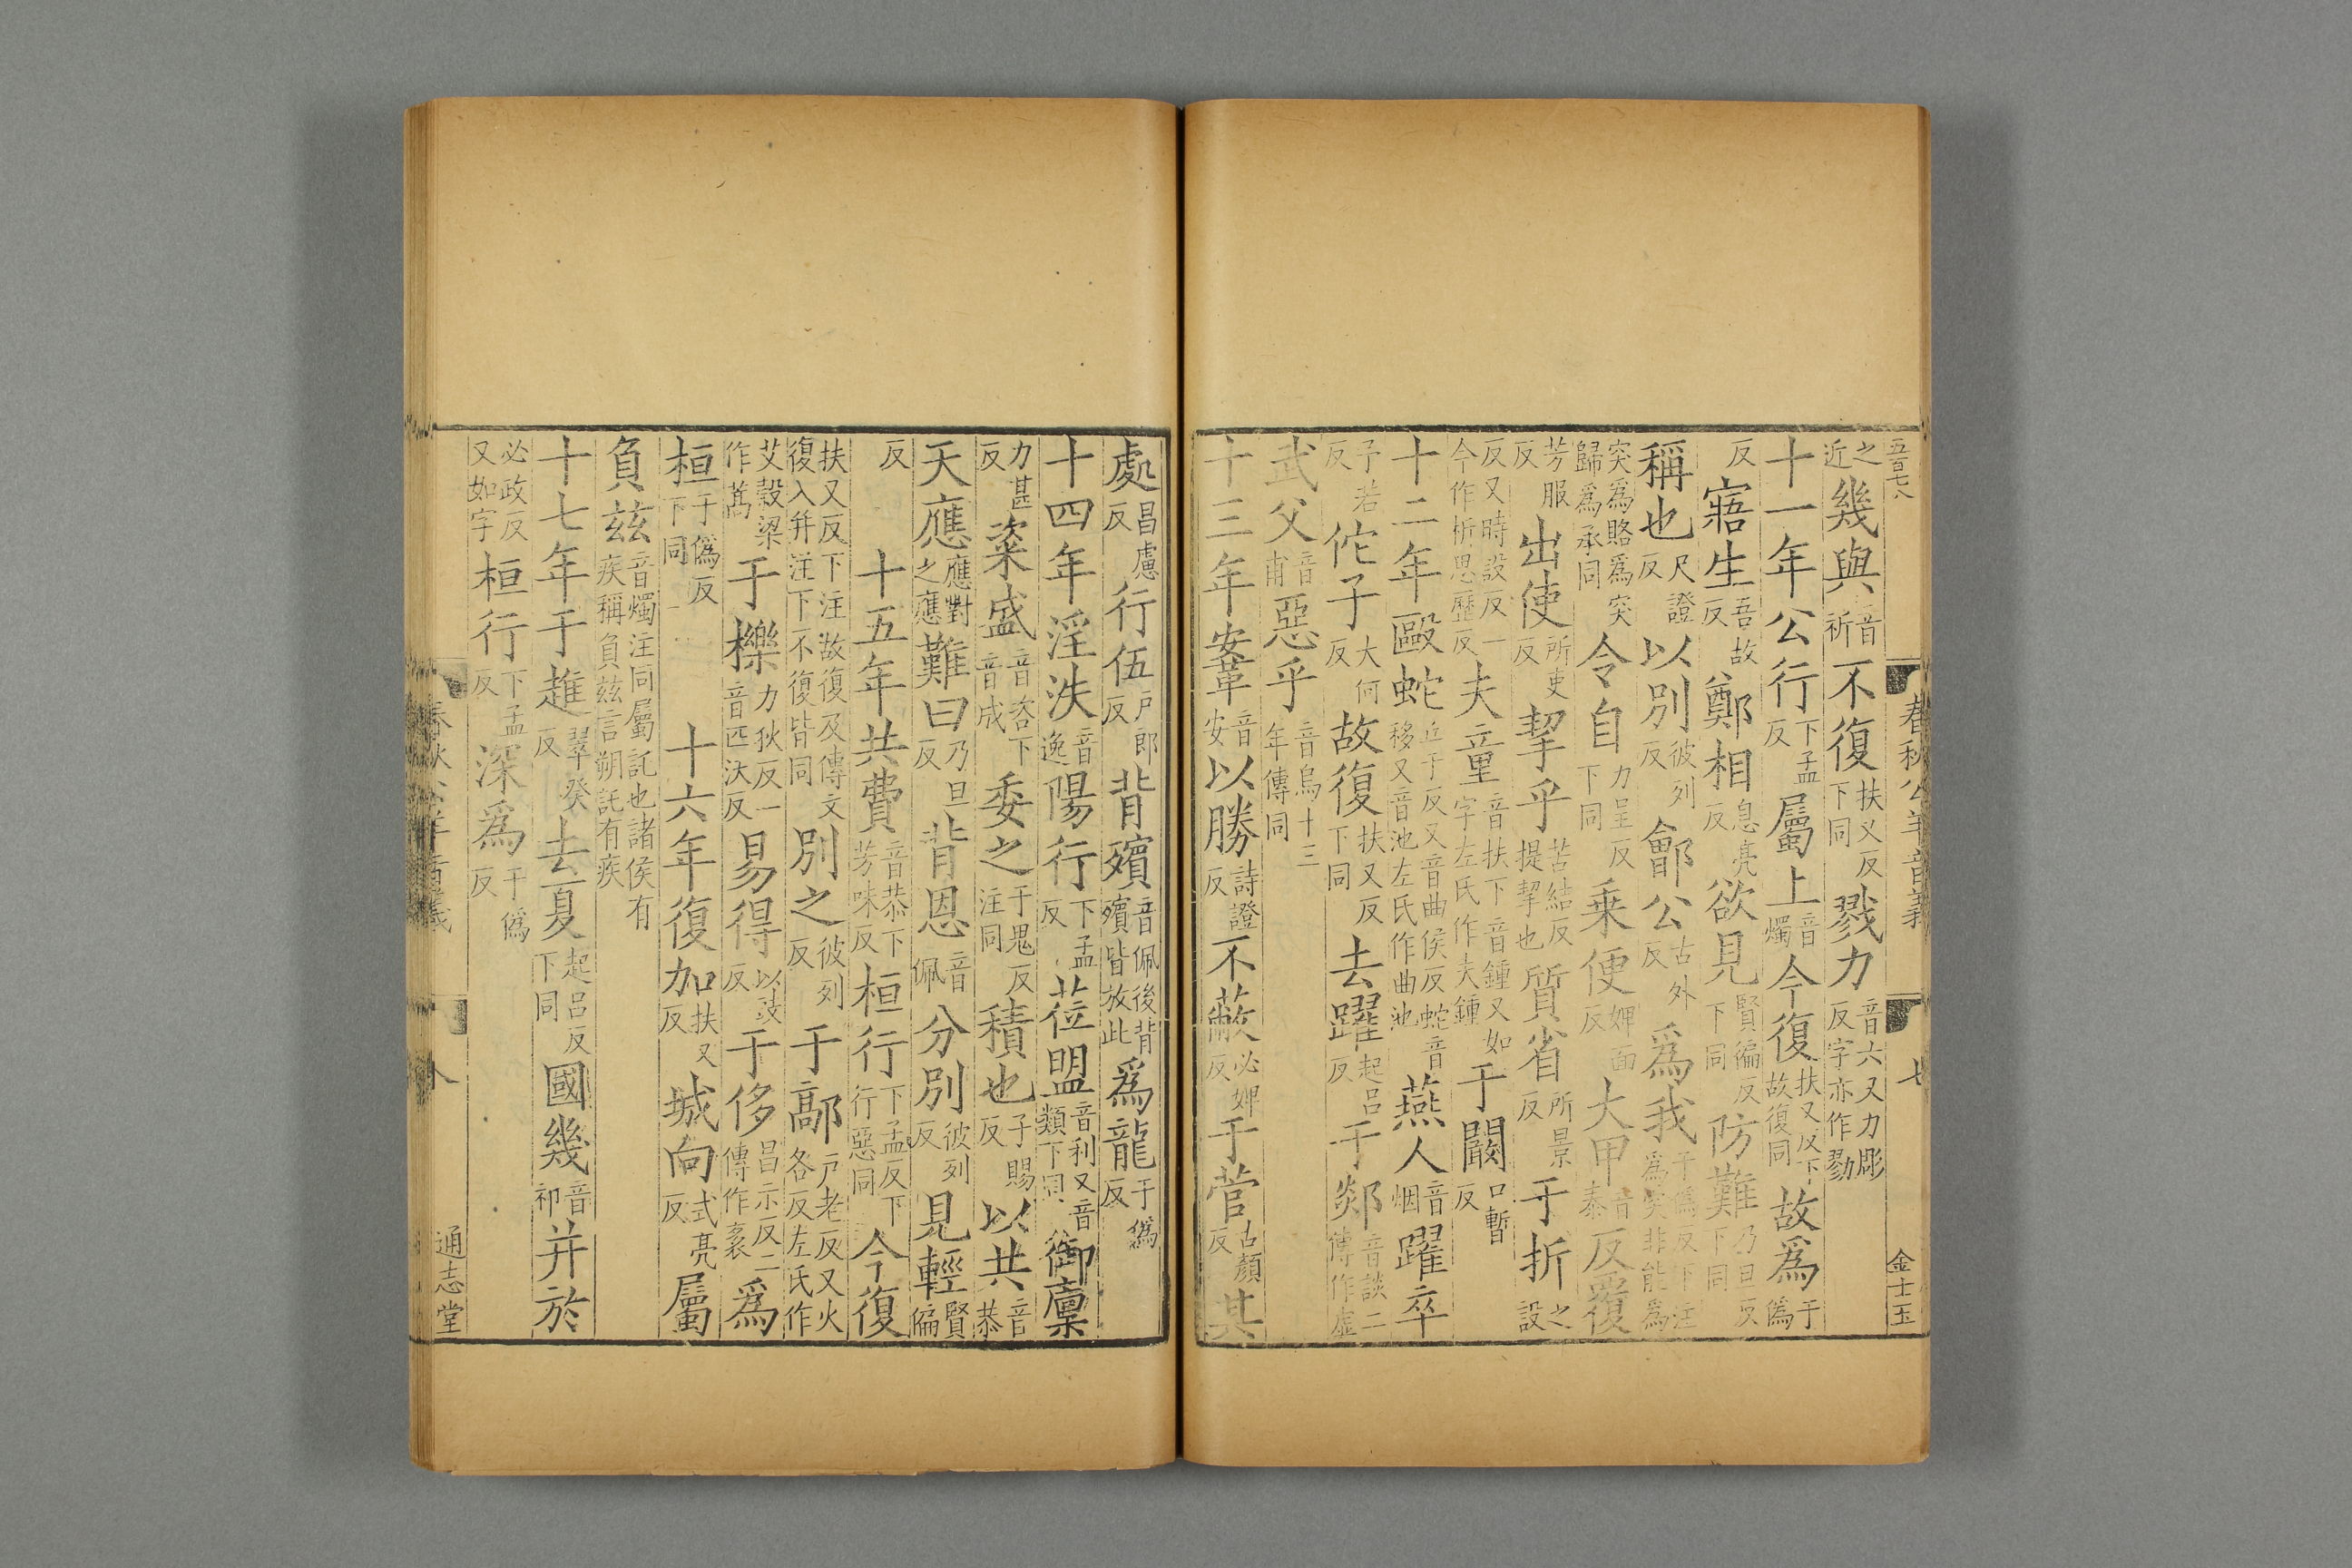 五百七八　春秋公羊音義　七　金士玉
之近幾與音祈不復扶又反下同戮力音六又力彫反字亦作勠
十一年公行下孟反屬上音燭今復扶又反下故復同故爲于僞
反寤生吾故反鄭相息亮反欲見賢徧反下同防難乃旦反下同
稱也尺證反以別彼列反鄶公古外反爲我于僞反下注爲突非能爲
突爲賂爲突歸爲承同令自力呈反下同乗便婢面反大甲音泰反覆
芳服反出使所吏反挈乎苦結反提挈也質省所景反于折之設
反又時設反一今作析思歷反夫童音扶下音鍾又如字左氏作夫鍾于闞口暫反
十二年毆蛇丘于反又音曲侯反蛇音移又音池左氏作曲池燕人音烟躍卒
予若反佗子大何反故復扶又反下同去躍起吕反于郯音談二傳作虛
武父音甫惡乎音烏十三年傳同
十三年安鞌音安以勝詩證反不蔽必婢反于菅古顏反其
處昌慮反行伍户郎反背殯音佩後背殯皆放此爲龍于僞反
十四年淫泆音逸陽行下孟反莅盟音利又音類下同御廩
力甚反粢盛音咨下音成委之于鬼反注同積也子賜反以共音恭
天應應對之應難曰乃旦反背恩音佩分別彼列反見輕賢徧
反　十五年共費音恭下芳味反桓行下孟反下行惡同今復
扶又反下注故復及傳文復入并注下不復皆同別之彼列反于鄗户老反又火各反左氏作
艾穀梁作蒿于櫟力狄反一音匹沃反易得以豉反于侈昌示反二傳作袲爲
桓于僞反下同　十六年復加扶又反城向式亮反屬
負玆音燭注同屬託也諸侯有疾稱負玆言朔託有疾
十七年于趡翠癸反去夏起吕反下同國幾音祁并於
必政反又如字桓行下孟反深爲于僞反
春秋公羊音義　八　通志堂